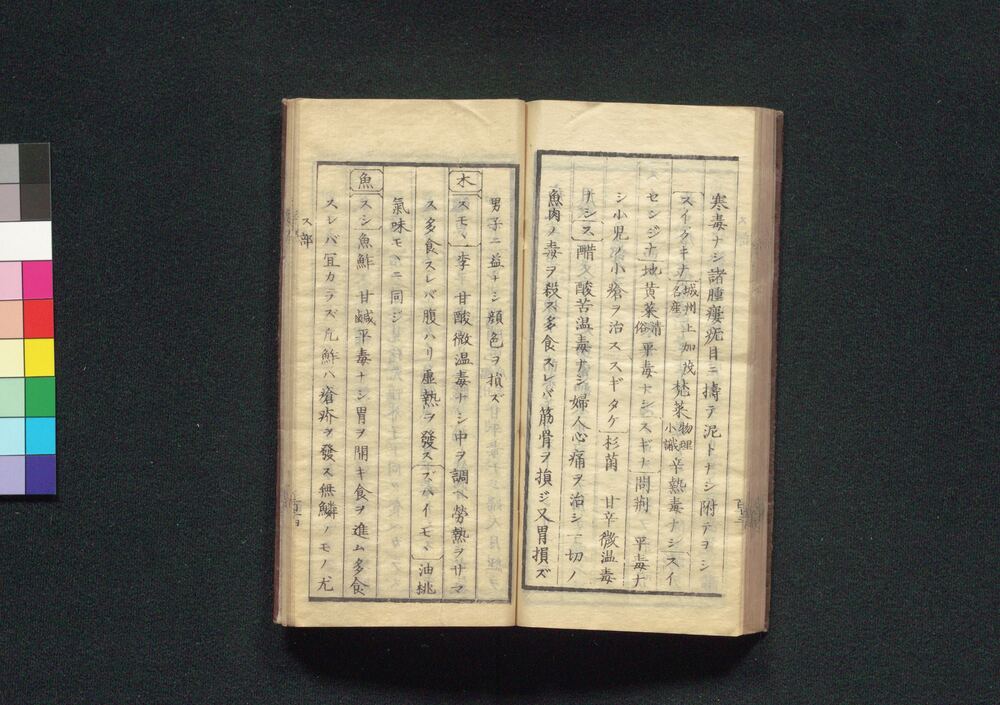 寒毒ナシ諸腫痛疣目ニ擣テ泥トナシ附テヨシ
スイクキナ 城州上加茂名産 芜菜 物理小識 辛熱毒ナシ スイ
センジナ 地黄菜 清俗 平毒ナシ スギナ 問荊 平毒ナ
シ小児ノ小瘡ヲ治ス スギタケ 杉菌 甘辛微温毒
ナシ ス 醋 酸苦温毒ナシ婦人心痛ヲ治シ一切ノ
魚肉ノ毒ヲ殺ス多食スレバ筋骨ヲ損ジ又胃損ズ
男子ニ益ナシ顔色ヲ損ズ
木 スモヽ 李 甘酸微温毒ナシ中ヲ調ヘ勞熱ヲサマ
ス多食スレバ腹ハリ虚熱ヲ發ス ズバイモヽ 油桃
氣味モヽニ同ジ
魚 スシ 魚鮓 甘鹹平毒ナシ胃ヲ開キ食ヲ進ム多食
スレバ冝カラズ凡鮓ハ瘡疥ヲ發ス無鱗ノモノ尤
ス部